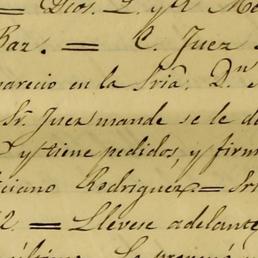 = Dios. L. y R. Me
Paz. = C. Juez
parecio en la Sria. Dn.
Sr. Juez mande se le d
y tiene pedidos, y firm
iciano Rodriguez = Sri
2. = Llevese adelante
última. Lo proveyó